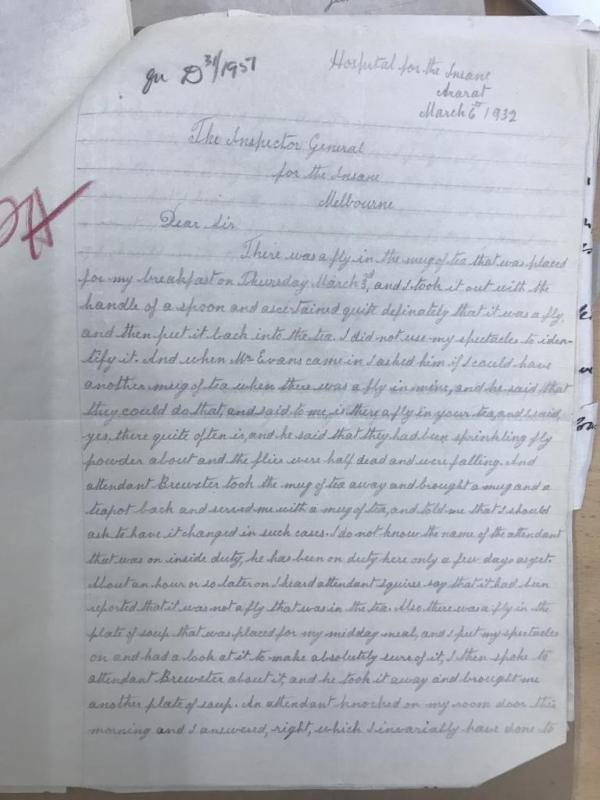 Hospital for the Insane
Ararat
March 6th 1932
The Inspector General
for the Insane
Melbourne
Dear Sir
There was a fly in the mug of tea that was placed
for my breakfast on Thursday March 3rd, and I took it out with the
handle of a spoon and ascertained quite definately that it was a fly,
and then put it back into the tea. I did not use my spectacles to iden-
tify it. And when Mr Evans came in I asked him if I could have
another mug of tea when there was a fly in mine, and he said that
they could do that, and said to me, is there a fly in your tea, and I said,
yes, there quite often is, and he said that they had been sprinkling fly
powder about and the flies were half dead and were falling. And
attendant Brewster took the mug of tea away and brought a mug and a
teapot back and served me with a mug of tea, and told me that I should
ask to have it changed in such cases. I do not know the name of the attendant
that was on inside duty, he has been on duty here only a few days as yet.
About an hour or so later on I heard attendant Squires say that it had been
reported that it was not a fly that was in the tea. Also there was a fly in the
plate of soup that was placed for my midday meal, and I put my spectacles
on and had a look at it to make absolutely sure of it, I then spoke to
attendant Brewster about it, and he took it away and brought me
another plate of soup. An attendant knocked on my room door this
morning and I answered, right, which I invariably have done to